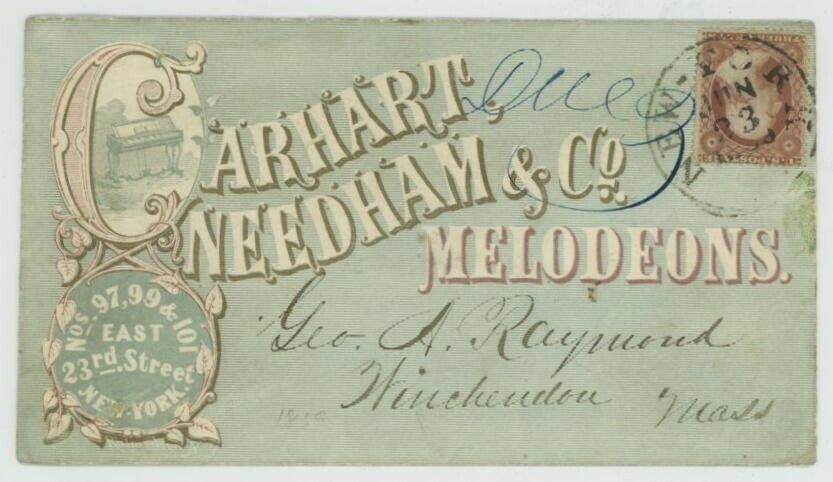 CARHART,
NEEDHAM & Co.
MELODEONS.
Nos. 97, 99 & 101
EAST
23rd. Street
NEW-YORK
Due 3
NEW-YORK
JUN
3
Geo. A. Raymond
Winchendon
Mass